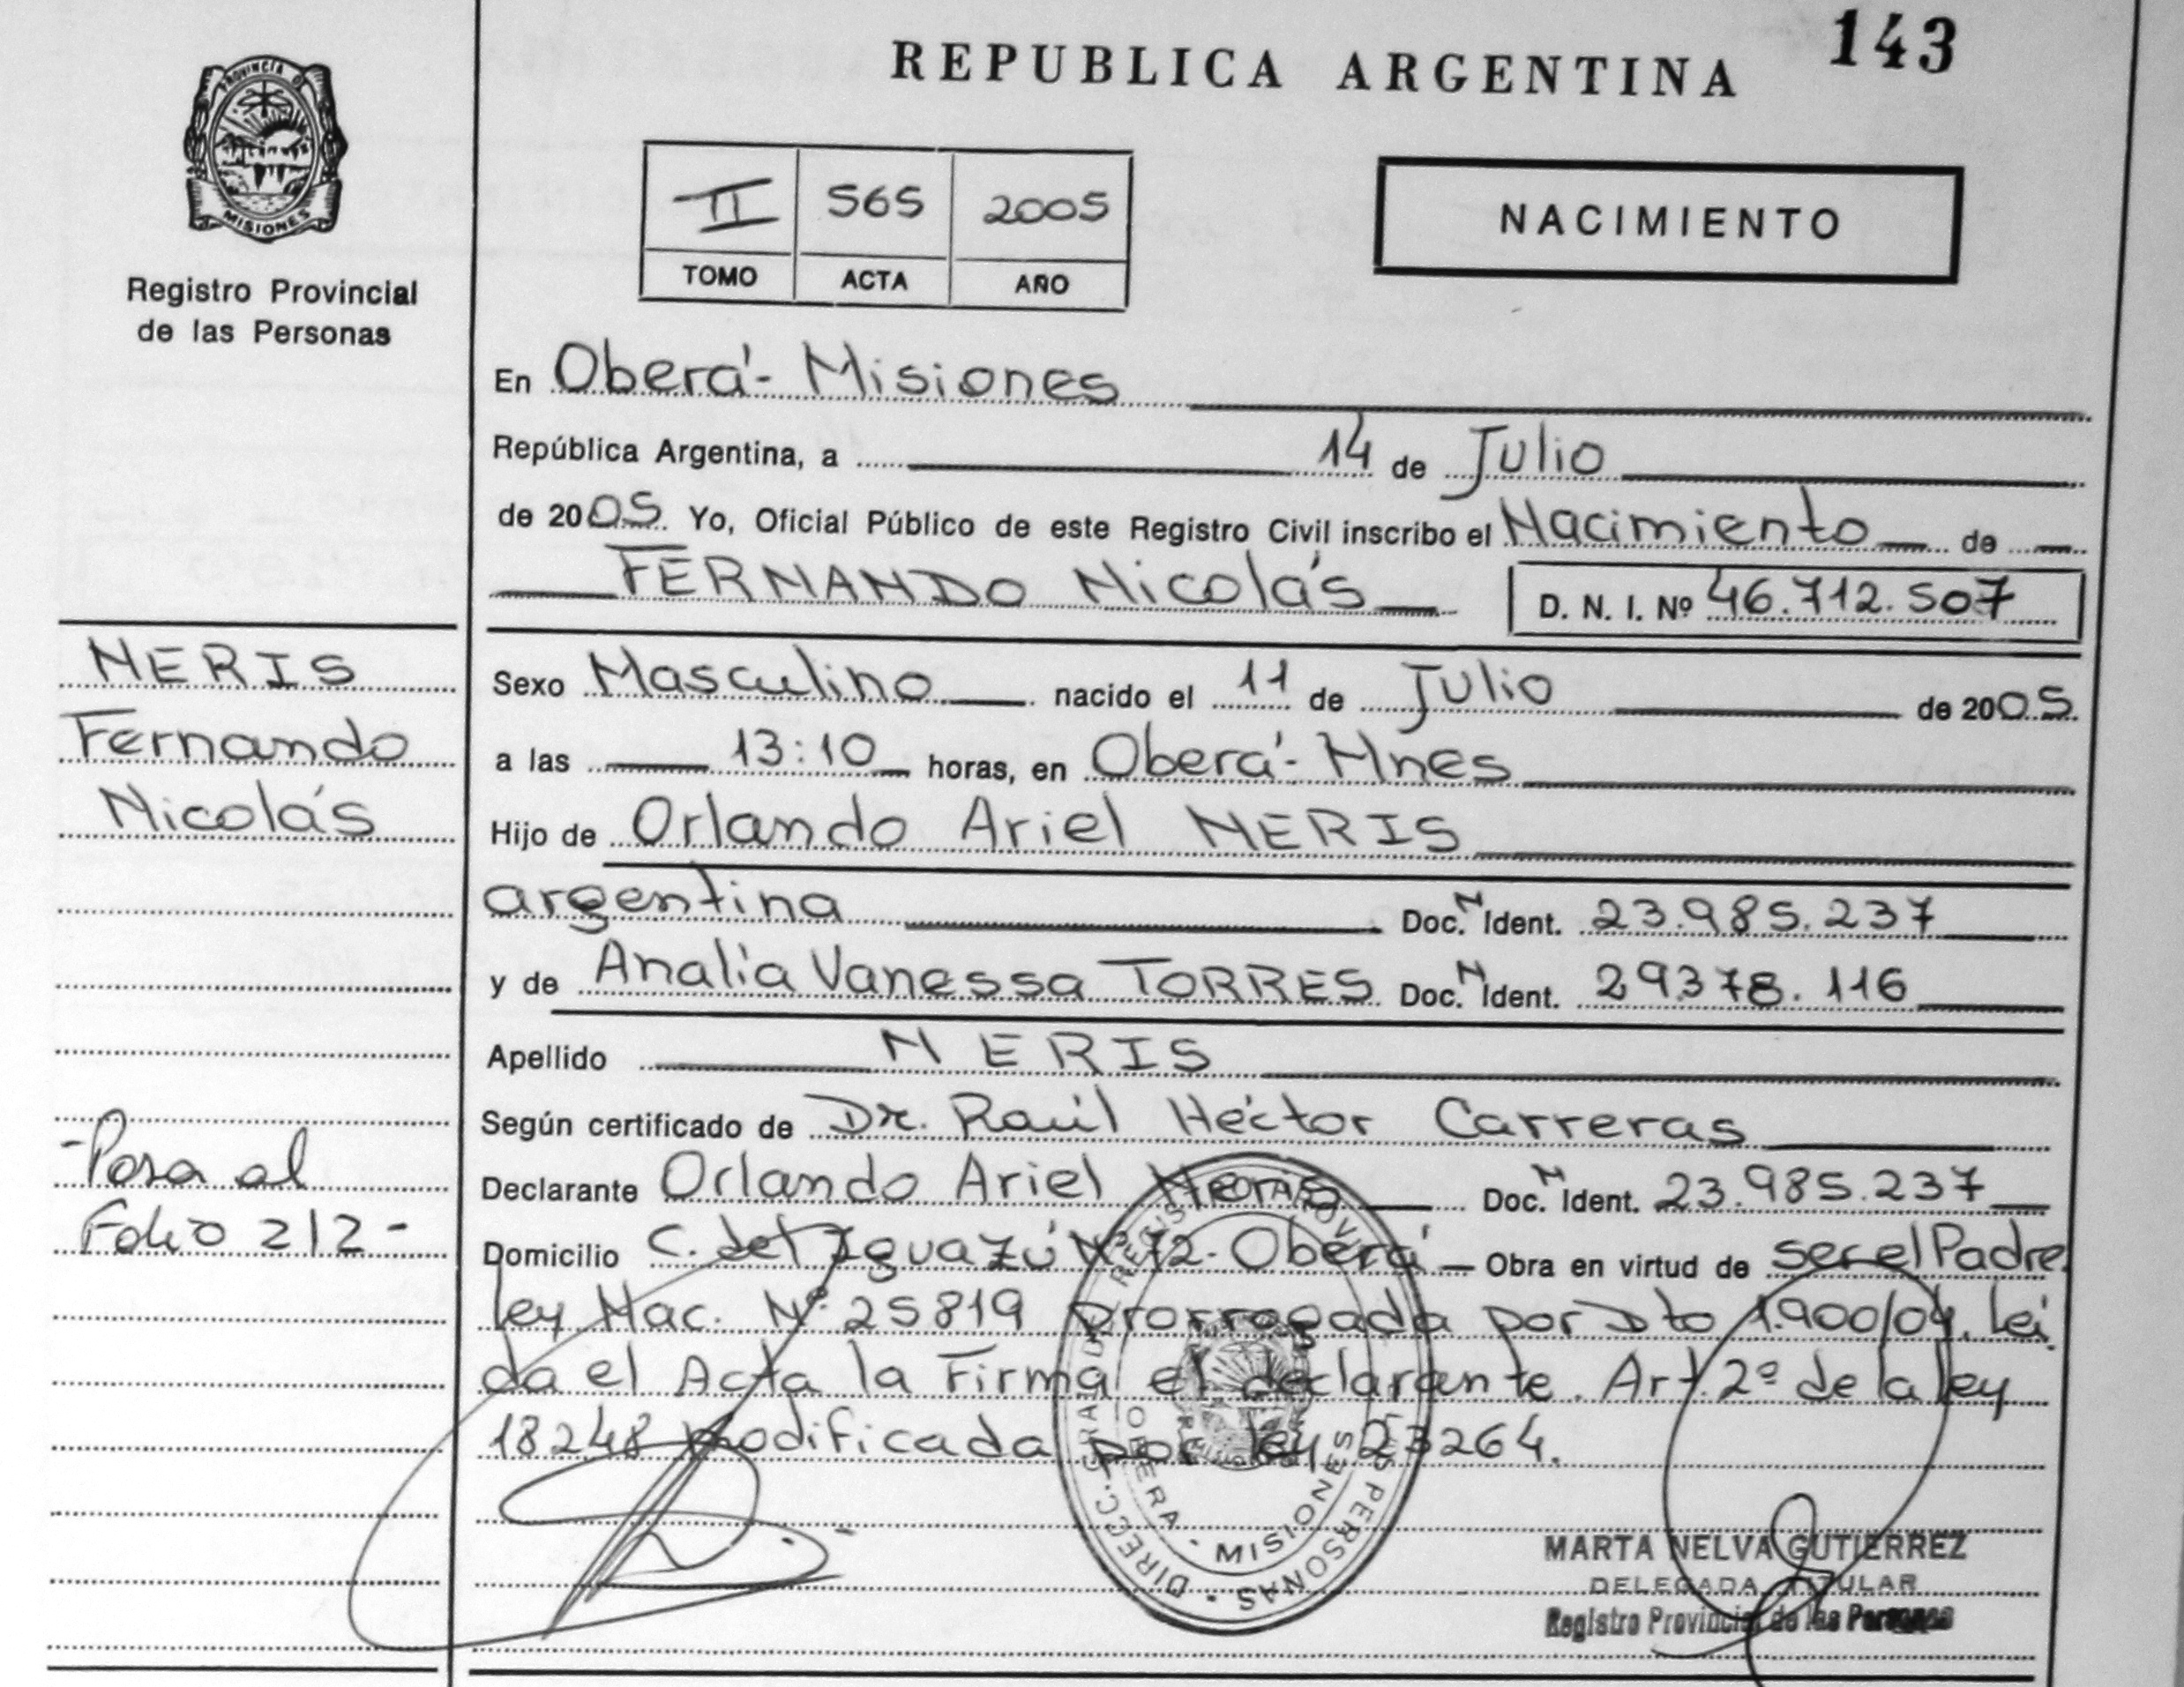 143
REPUBLICA ARGENTINA
PROVINCIA D
MISIONES
Registro Provincial
de las Personas
II 565 2005
TOMO ACTA AÑO
NACIMIENTO
En Oberá - Misiones
República Argentina, a 14 de Julio
de 2005 Yo, Oficial Público de este Registro Civil inscribo el Nacimiento de
FERNANDO Nicolás D. N. I. Nº 46.712.507
NERIS
Fernando
Nicolás
Sexo Masculino nacido el 11 de Julio de 2005
a las 13:10 horas, en Oberá - Mnes
Hijo de Orlando Ariel NERIS
argentina Doc. N Ident. 23.985.237
y de Analía Vanessa TORRES Doc. N Ident. 29.378.116
Apellido NERIS
Según certificado de Dr. Raúl Héctor Carreras
- Pasa al
Folio 212 -
Declarante Orlando Ariel Neris Doc. N Ident. 23.985.237
Domicilio C. del Iguazú Nº 72 - Oberá - Obra en virtud de ser el Padre.
ley Nac. Nº 25819 prorrogada por Dto 1.900/04. Leí
da el Acta la Firma el declarante. Art. 2º de la ley
18248 modificada por ley 23264.
DIRECC. GRAL. DE REGISTRO PROVINCIAL PERSONAS
OBERA - MISIONES
MARTA NELVA GUTIERREZ
DELEGADA TITULAR
Registro Provincial de las Personas